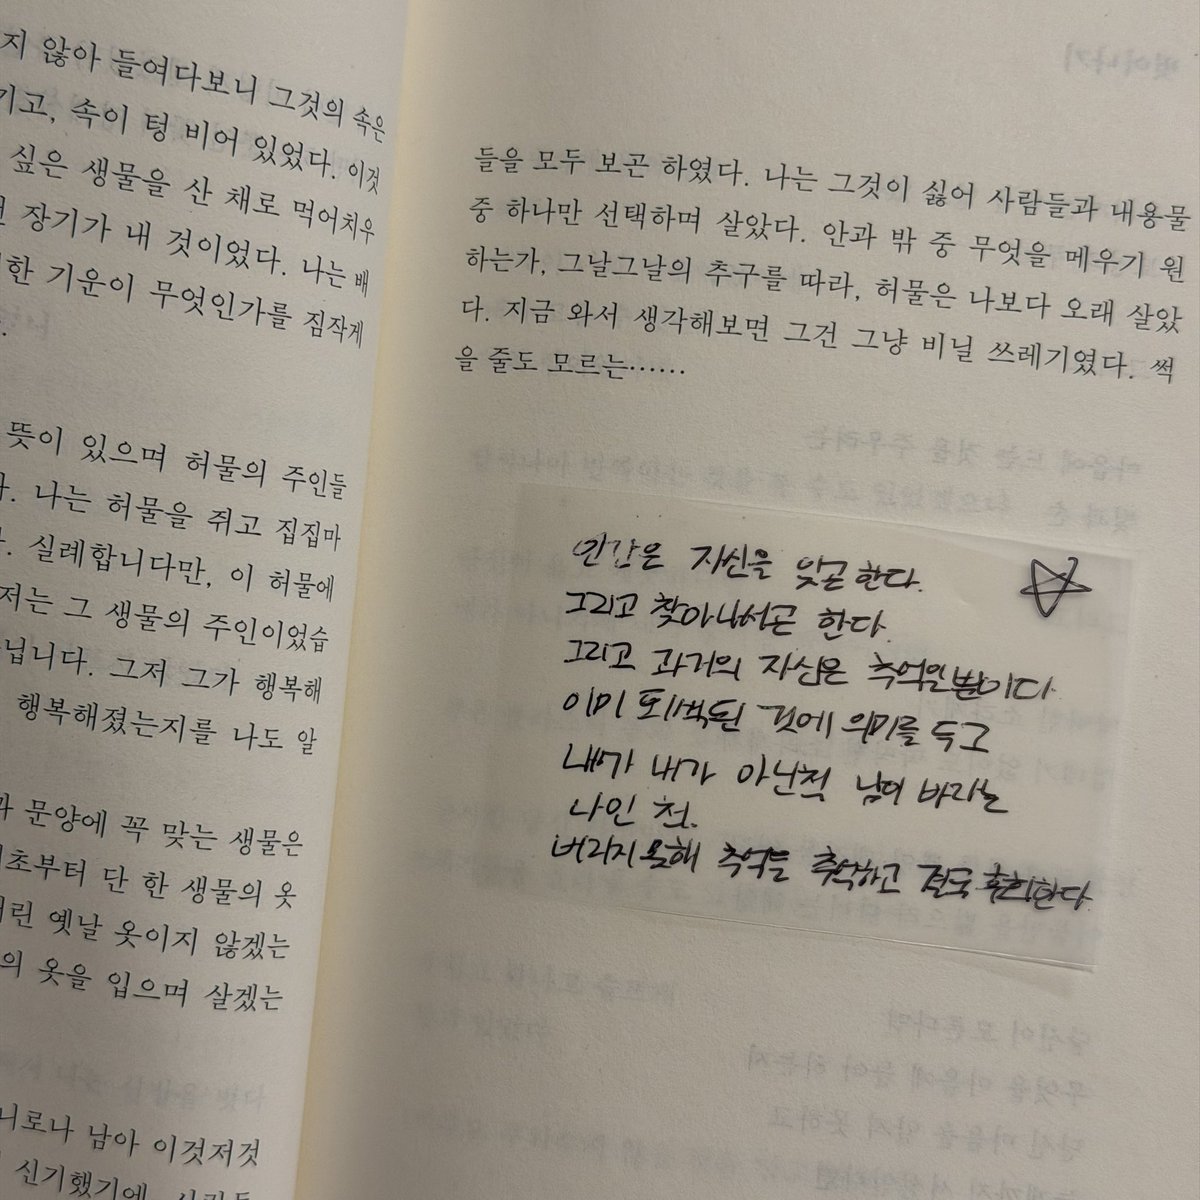 지 않아 들여다보니 그것의 속은
기고, 속이 텅 비어 있었다. 이것
싶은 생물을 산 채로 먹어치우
장기가 내 것이었다. 나는 배
한 기운이 무엇인가를 짐작게
뜻이 있으며 허물의 주인들
나는 허물을 쥐고 집집마
실례합니다만, 이 허물에
저는 그 생물의 주인이었습
닙니다. 그저 그가 행복해
행복해졌는지를 나도 알
문양에 꼭 맞는 생물은
초부터 단 한 생물의 옷
린 옛날 옷이지 않겠는
의 옷을 입으며 살겠는
니로나 남아 이것저것
신기했기에
들을 모두 보곤 하였다. 나는 그것이 싫어 사람들과 내용물
중 하나만 선택하며 살았다. 안과 밖 중 무엇을 메우기 원
하는가, 그날그날의 추구를 따라, 허물은 나보다 오래 살았
다. 지금 와서 생각해보면 그건 그냥 비닐 쓰레기였다. 썩
을 줄도 모르는……
인간은 자신을 잊곤 한다.
그리고 찾아나서곤 한다.
그리고 과거의 자신은 추억일 뿐이다.
이미 퇴색된 것에 의미를 두고
내가 내가 아닌 척 남이 바라는
나인 척.
버리지 못해 추억을 추악하고 결국 후회한다.